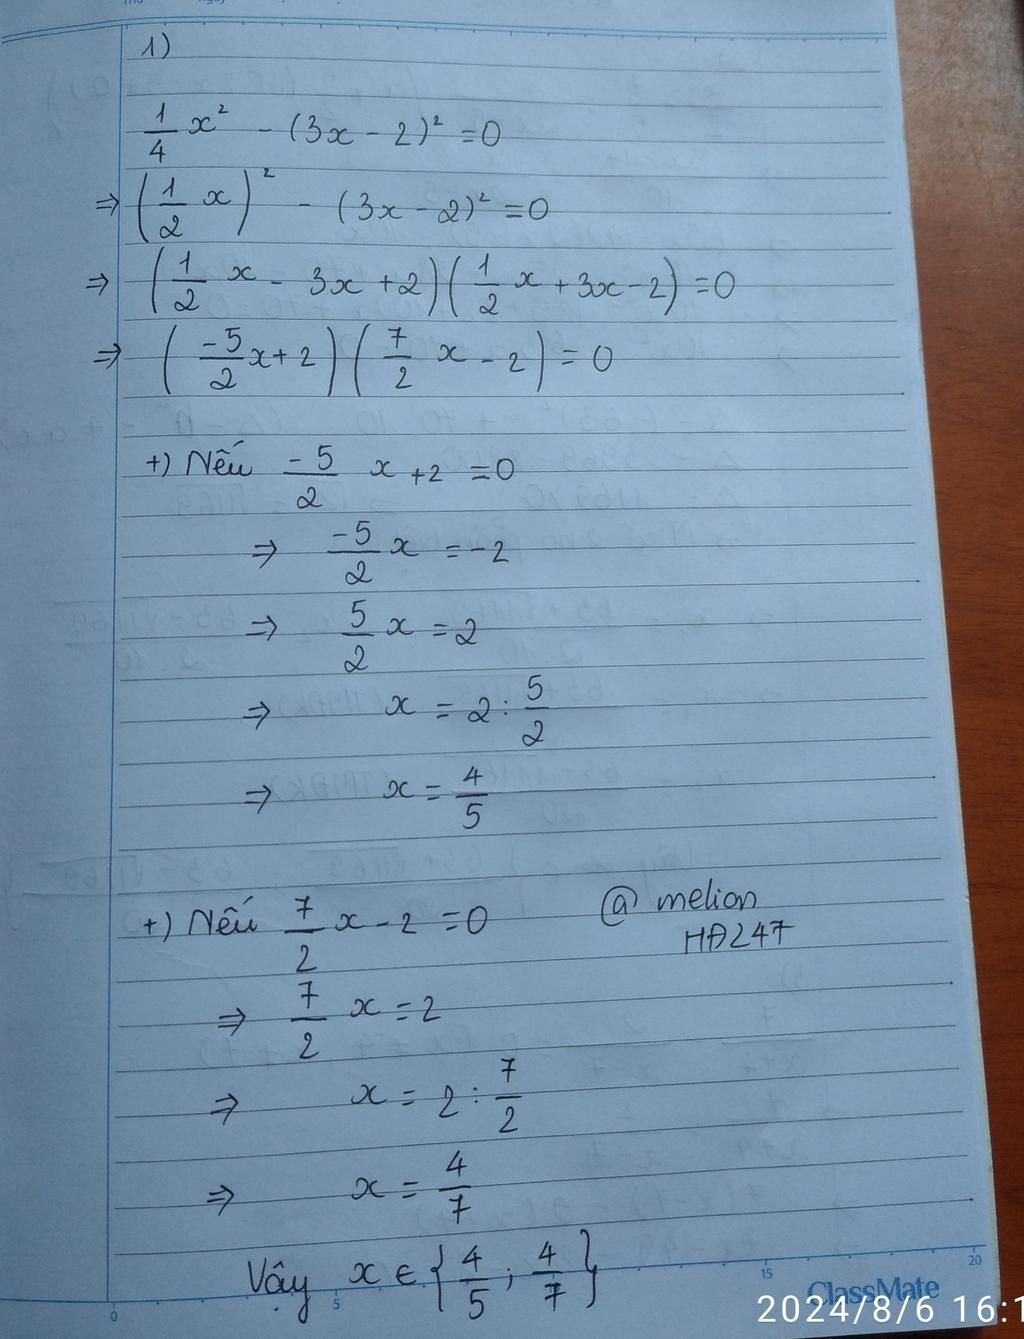 1)
1/4 x² - (3x - 2)² = 0
⇒ (1/2 x)² - (3x - 2)² = 0
⇒ (1/2 x - 3x + 2)(1/2 x + 3x - 2) = 0
⇒ (-5/2 x + 2)(7/2 x - 2) = 0
+) Nếu -5/2 x + 2 = 0
⇒ -5/2 x = -2
⇒ 5/2 x = 2
⇒ x = 2 : 5/2
⇒ x = 4/5
+) Nếu 7/2 x - 2 = 0
@ melion
HĐ247
⇒ 7/2 x = 2
⇒ x = 2 : 7/2
⇒ x = 4/7
Vậy x ∈ {4/5 ; 4/7}
0 5 15 20
ClassMate
2024/8/6 16:1